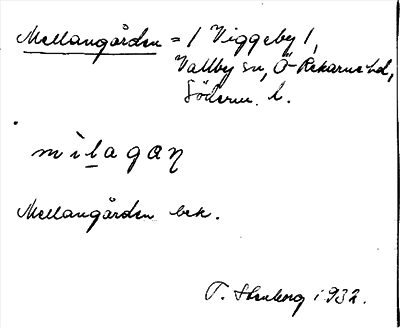 Mellangården = / Viggeby /,
Vallby sn, Ö-Rekarne hd,
Söderm. l.
mìlagaŋ
Mellangården bek.
T. Stenberg i 932.